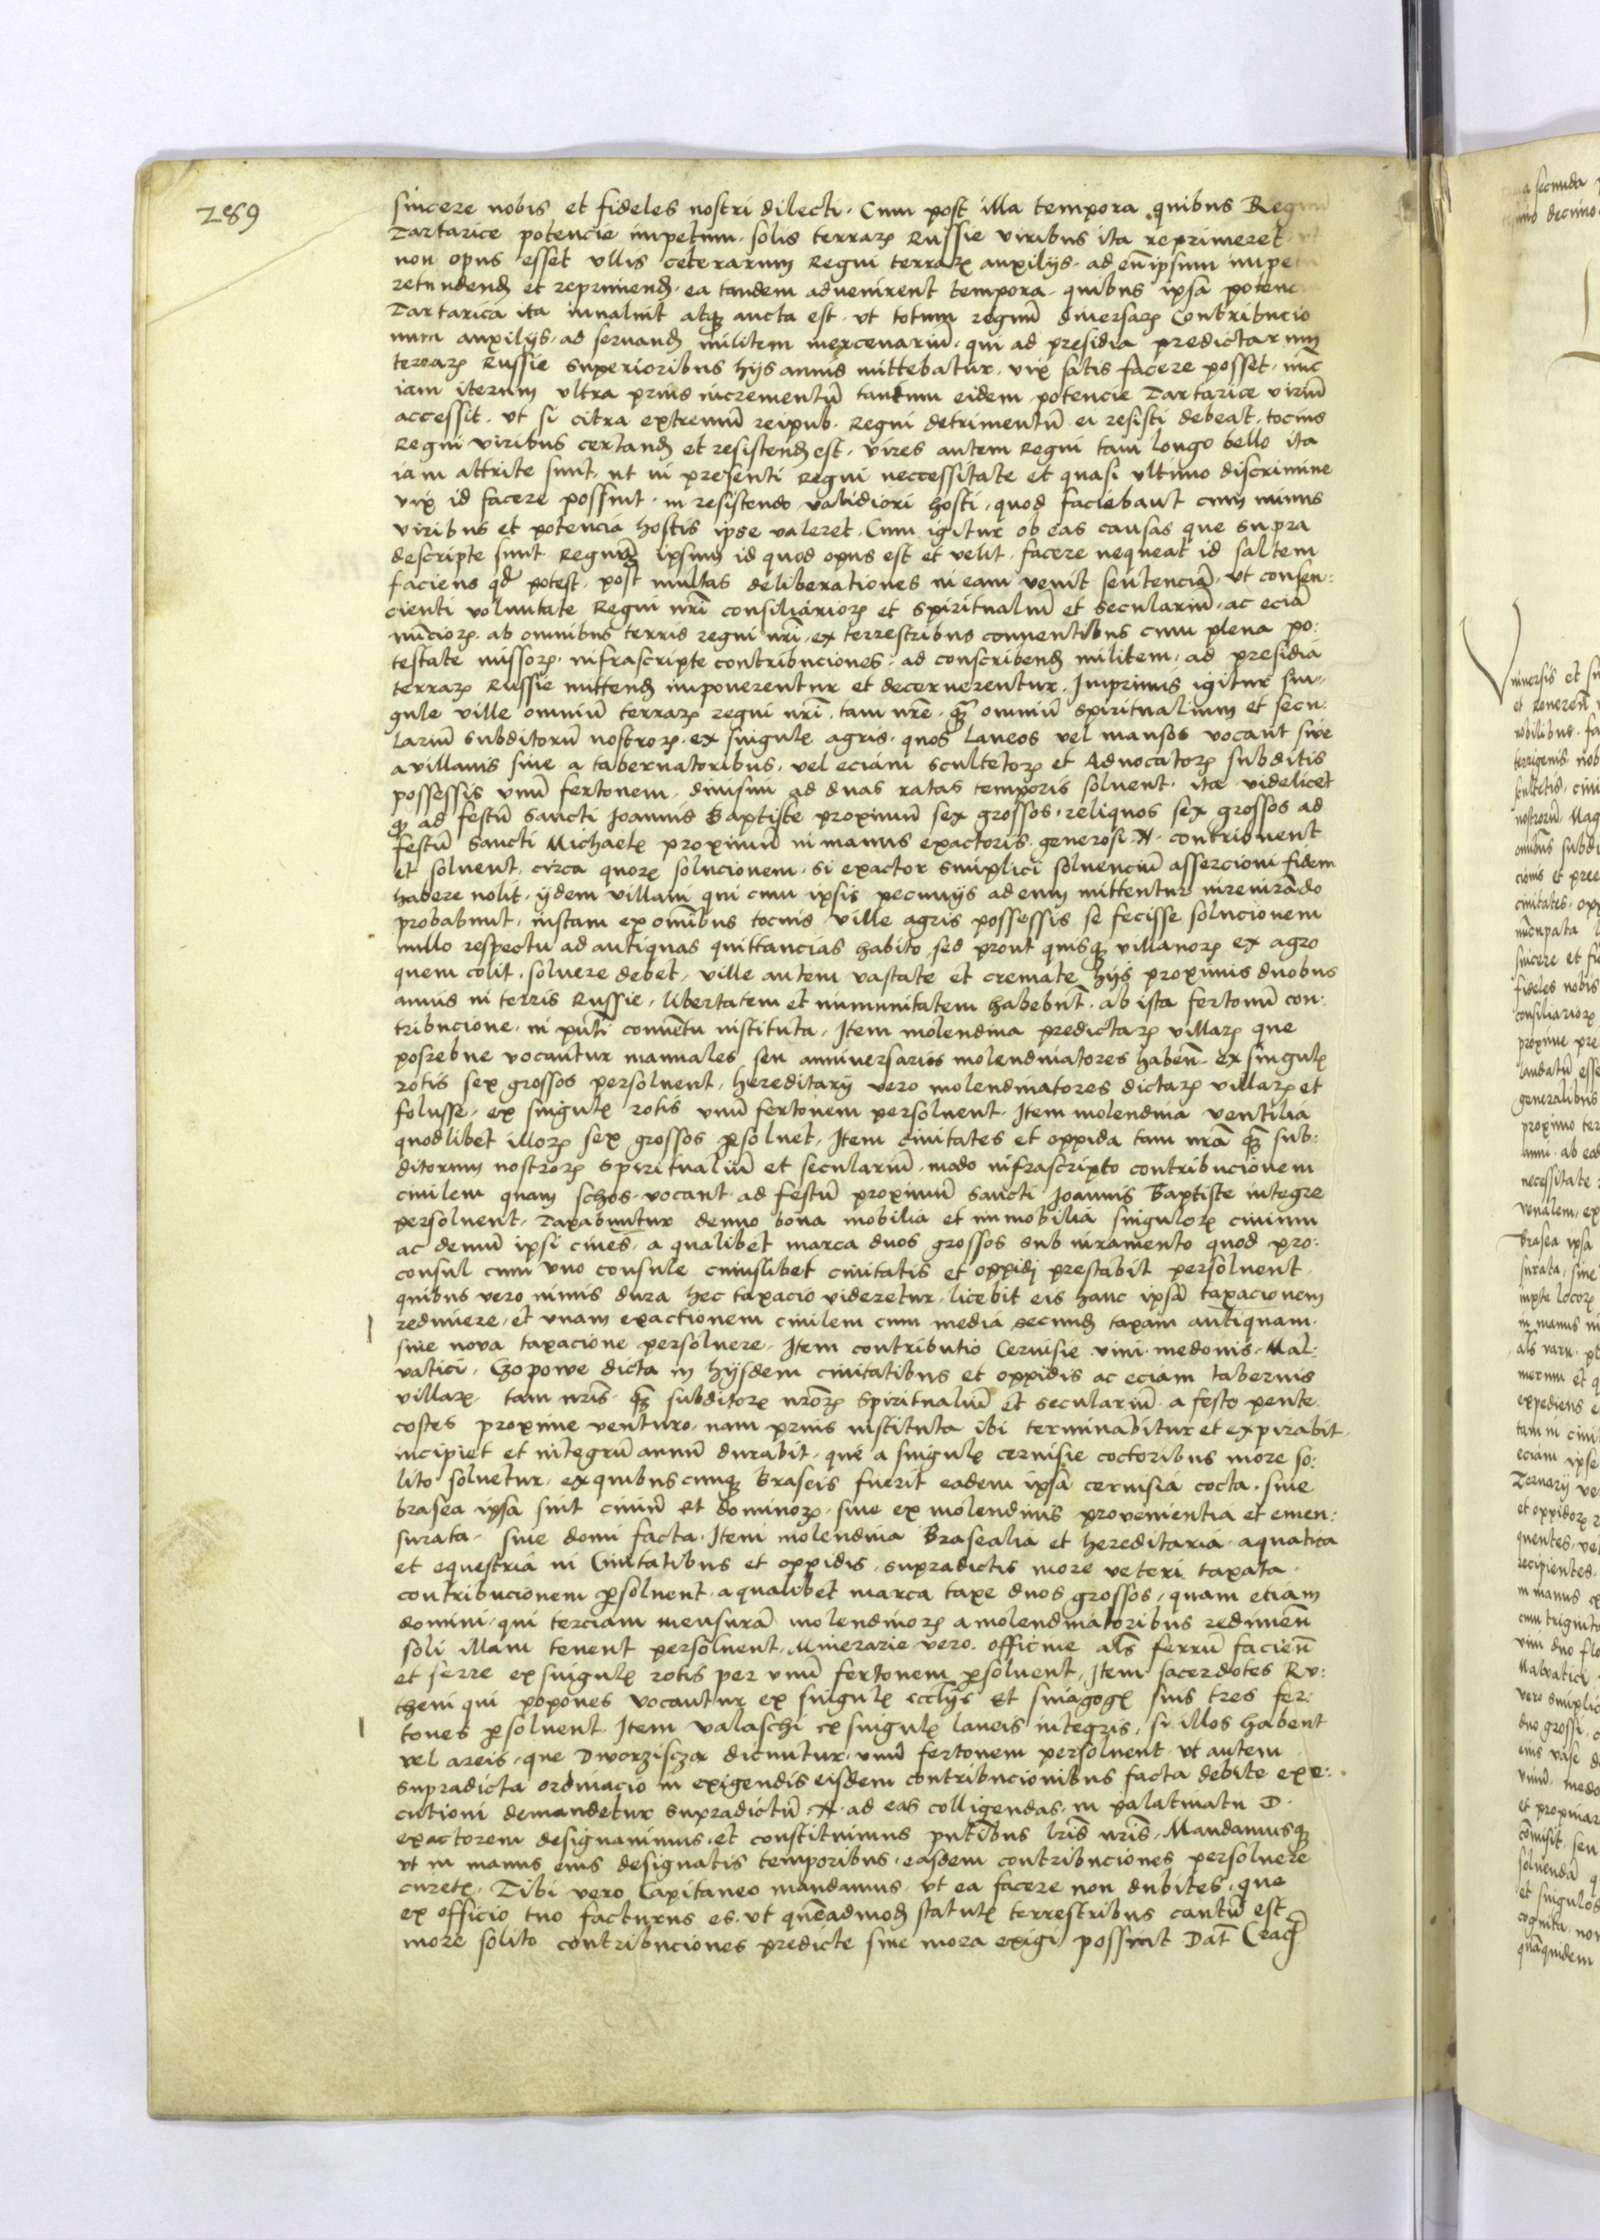 289
sincere nobis et fideles nostri dilecti. Cum post illa tempora quibus Regnu
Tartarice potencie impetum. solis terrarꝝ Russie viribus ita reprimeret. ut
non opus esset vllis ceterarum Regni terrarꝝ auxilijs. ad eūipsum impetu
retundendɧ et reprimendɧ. ea tandem advenirent tempora. quibus ipsā potenc
Tartarica ita inualuit atqꝫ aucta est. vt totum regnū diuersarꝝ Contribucio
num auxilijs. ad seruandɧ militem mercenariū. qui ad presidia predictarum
terrarꝝ Russie superioribus hijs annis mittebatur. vix satis facere posset. nūc
iam iterum vltra prius incrementū tantum eidem potencie Tartarice viriū
accessit. vt si citra extremū reipub. Regni detrimentū ei resisti debeat. tocius
Regni viribus certandɧ et resistendɧ est. vires autem Regni tam longo bello ita
iam attrite sunt. ut in presenti Regni neccessitate et quasi vltimo discrimine
vix id facere possint. in resistendo validiori hosti. quod faciebant cum minus
viribus et potencia hostis ipse valeret. Cum igitur ob eas causas que supra
descripte sunt Regnum ipsum id quod opus est et velit. facere nequeat id saltem
faciens qd potest. post multas deliberationes in eam venit sentenciā. vt consen:
cienti voluntate Regni nrī consiliariorꝝ et spiritualiū et seculariū. ac eciā
nūciorꝝ. ab omnibus terris regni nrī. ex terrestribus conuentibus cum plena po:
testate missorꝝ. infrascripte contribuciones. ad conscribendɧ militem. ad presidia
terrarꝝ Russie mittendɧ imponerentur et decernerentur. Imprimis igitur sin-
gule ville omniū terrarꝝ regni nrī. tam nrē. qꝫ omniū spiritualium et secu:
lariū subditorū nostrorꝝ. ex singulꝭ agris. quos laneos vel mansos vocant siue
a villanis siue a tabernatoribus. vel eciam scultetorꝝ et Aduocatorꝝ subditis
possessis vnū fertonem. diuisim ad duas ratas temporis soluent. ita videlicet
qꝫ ad festū sancti Joannis Baptiste proximū sex grossos. reliquos sex grossos ad
festū sancti Michaelꝭ proximū in manus exactoris generosi. N. contribuent
et soluent. circa quorꝝ solucionem. si exactor simplici soluenciū assercioni fidem
habere nolit. ijdem villani qui cum ipsis pecunijs ad eum mittentur iureiurādo
probabunt. iustam ex omībus tocius ville agris possessis se fecisse solucionem
nullo respectu ad antiquas quittancias habito sed prout quisqꝫ villanorꝝ ex agro
quem colit. soluere debet. ville autem vastate et cremate hijs proximis duobus
annis in terris Russie. libertatem et immunitatem habebūt. ab ista fertonū con:
tribucione. in pūti conuētu instituta. Item molendina predictarꝝ villarꝝ que
posrebne vocantur mannales seu anniuersarios molendinatores habeñ. ex singulꝭ
rotis sex grossos persoluent. hereditarij vero molendinatores dictarꝝ villarꝝ et
folusse. ex singulꝭ rotis vnū fertonem persoluent. Item molendina ventilia
quodlibet illorꝝ sex grossos ꝑsoluet. Item ciuitates et oppida tam nrā qꝫ sub:
ditorum nostrorꝝ spiritualiū et seculariū. modo infrascripto contribucionem
ciuilem quam schos. vocant. ad festū proximū sancti Joannis Baptiste integre
persoluent. Taxabuntur denuo bona mobilia et immobilia singulorꝝ ciuium
ac demū ipsi ciues. a qualibet marca duos grossos sub iuramento quod pro:
consul cum vno consule cuiuslibet ciuitatis et oppidi prestabit persoluent
quibus vero nimis dura hec taxacio videretur. licebit eis hanc ipsā taxacionem
redimere. et vnam exactionem ciuilem cum media secundɧ taxam antiquam.
siue noua taxacione persoluere. Item contributio Ceruisie vini medonis. Mal:
vatici. Czopowe dicta in hijsdem ciuitatibus et oppidis ac eciam tabernis
villarꝝ. tam nrīs. qꝫ subditorꝝ nrōrꝝ Spiritualiū et seculariū. a festo pente
costes proxime venturo. nam prius instituta ibi terminabitur et expirabit.
incipiet et integrū annū durabit. que a singulꝭ ceruisie coctoribus more so:
lito soluetur. ex quibuscunqꝫ braseis fuerit eadem ipsā ceruisia cocta. siue
brasea ipsa sint ciuiū et dominorꝝ. siue ex molendinis prouenientia et emen:
surata. siue domi facta. Item molendina Brasealia et hereditaria. aquatica
et equestria in Ciuitatibus et oppidis. supradictis more veteri taxata.
contribucionem ꝑsoluent. a qualibet marca taxe duos grossos. quam etiam
domini. qui terciam mensurā molendinorꝝ a molendinatoribus redimeñ
soli illam tenent persoluent. Minerarie vero. officine als ferrū facieñ
et serre ex singulꝭ rotis per vnū fertonem ꝑsoluent. Item sacerdotes Ru:
theni qui popones vocantur ex singulꝭ eccl̄ijs et sinagogꝭ suis tres fer:
tones ꝑsoluent. Item valaschi ex singulꝭ laneis integris. si illos habent
vel areis. que Dworziscza dicuntur. vnū fertonem persoluent. vt autem
supradicta ordinacio in exigendis eisdem contribucionibus facta debite exe:
cutioni demandetur supradictū. N. ad eas colligendas. in palatinatu D.
exactorem designauimus. et constituimus pntībus lrīs nrīs. Mandamusqꝫ
vt in manus eius designatis temporibus. easdem contribuciones persoluere
curetꝭ. Tibi vero Capitaneo mandamus. vt ea facere non dubites. que
ex officio tuo facturus es. vt quēadmodɧ statutꝭ terrestribus cautū est
more solito contribuciones predicte sine mora exigi possint Dat̄ Crac̄
a secunda
decimo
Vniuersis et
et Genereñ
nobilibus. fa
terrigenis. nob
scultetis. ciui
nostrorū. Mag
omībus subdi
cionis et pree
ciuitates. opp
sincere et fi
fideles nobis
consiliariorꝝ
proxime pre
laudatū esse
generalibus
proximo ter
anni. ab ead
necessitate
venalem. ex
Brasea ipsa
surata. siue
locorꝝ
in manus
expediens e
tam in ciui
eciam ipse
Ternarij ve
et oppidorꝝ
quentes. ve
recipientes.
in manus
cum triginta
vini duo flo
Maluatici
vero simplic
duo grossi.
eius vase d
vnius medo
et propinar
cōmisit. seu
soluenda q
et singulos
cognita. non
quāquidem